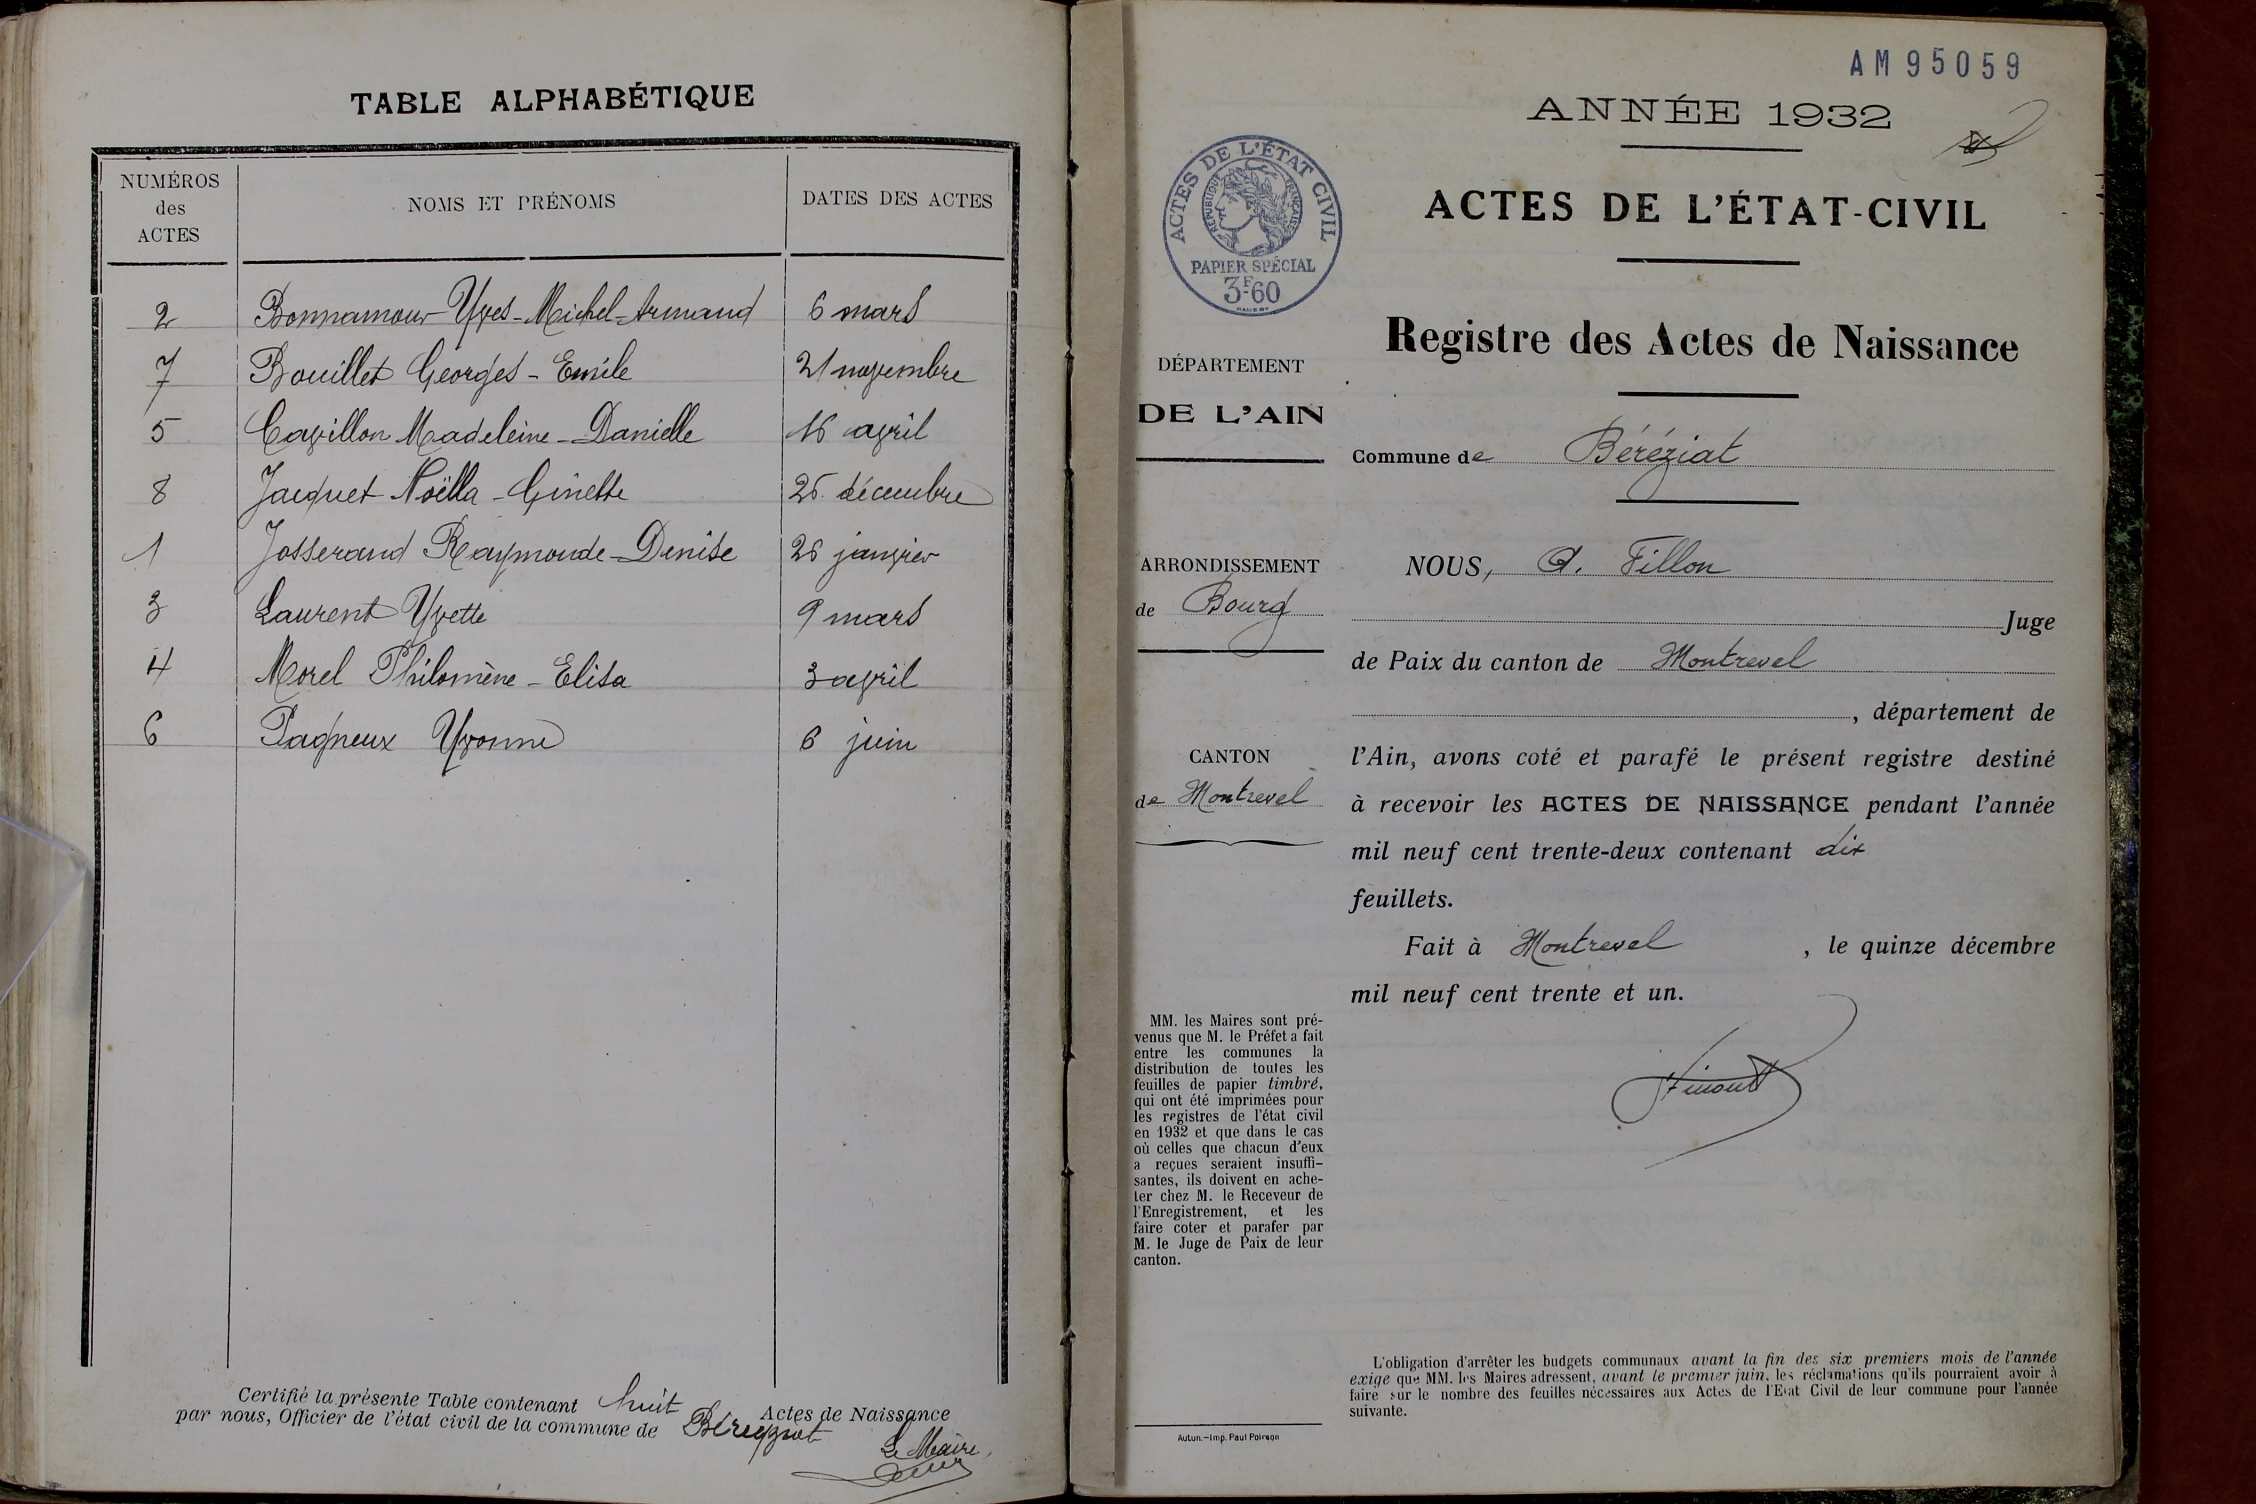 TABLE ALPHABÉTIQUE
NUMÉROS des ACTES
NOMS ET PRÉNOMS
DATES DES ACTES
2 Bonnamour Yves-Michel-Armand 6 mars
7 Bouillet Georges-Emile 21 novembre
5 Cavillon Madeleine-Danielle 16 avril
8 Jacquet Noëlla-Ginette 25 décembre
1 Josserand Raymonde-Denise 26 janvier
3 Laurent Yvette 9 mars
4 Morel Philomène-Elisa 3 avril
6 Pagneux Yvonne 6 juin
Certifié la présente Table contenant huit Actes de Naissance
par nous, Officier de l'état civil de la commune de Béréziat
Le Maire,
AM95059
ANNÉE 1932
ACTES DE L'ÉTAT CIVIL
RÉPUBLIQUE FRANÇAISE
PAPIER SPÉCIAL
3F60
ACTES DE L'ÉTAT-CIVIL
Registre des Actes de Naissance
DÉPARTEMENT
DE L'AIN
Commune de Béréziat
ARRONDISSEMENT
de Bourg
CANTON
de Montrevel
NOUS, A. Fillon
Juge
de Paix du canton de Montrevel
, département de
l'Ain, avons coté et parafé le présent registre destiné
à recevoir les ACTES DE NAISSANCE pendant l'année
mil neuf cent trente-deux contenant dix
feuillets.
Fait à Montrevel , le quinze décembre
mil neuf cent trente et un.
MM. les Maires sont pré-
venus que M. le Préfet a fait
entre les communes la
distribution de toutes les
feuilles de papier timbré,
qui ont été imprimées pour
les registres de l'état civil
en 1932 et que dans le cas
où celles que chacun d'eux
a reçues seraient insuffi-
santes, ils doivent en ache-
ter chez M. le Receveur de
l'Enregistrement, et les
faire coter et parafer par
M. le Juge de Paix de leur
canton.
L'obligation d'arrêter les budgets communaux avant la fin des six premiers mois de l'année
exige que MM. les Maires adressent, avant le premier juin, les réclamations qu'ils pourraient avoir à
faire sur le nombre des feuilles nécessaires aux Actes de l'Etat Civil de leur commune pour l'année
suivante.
Autun.—Imp. Paul Poirson